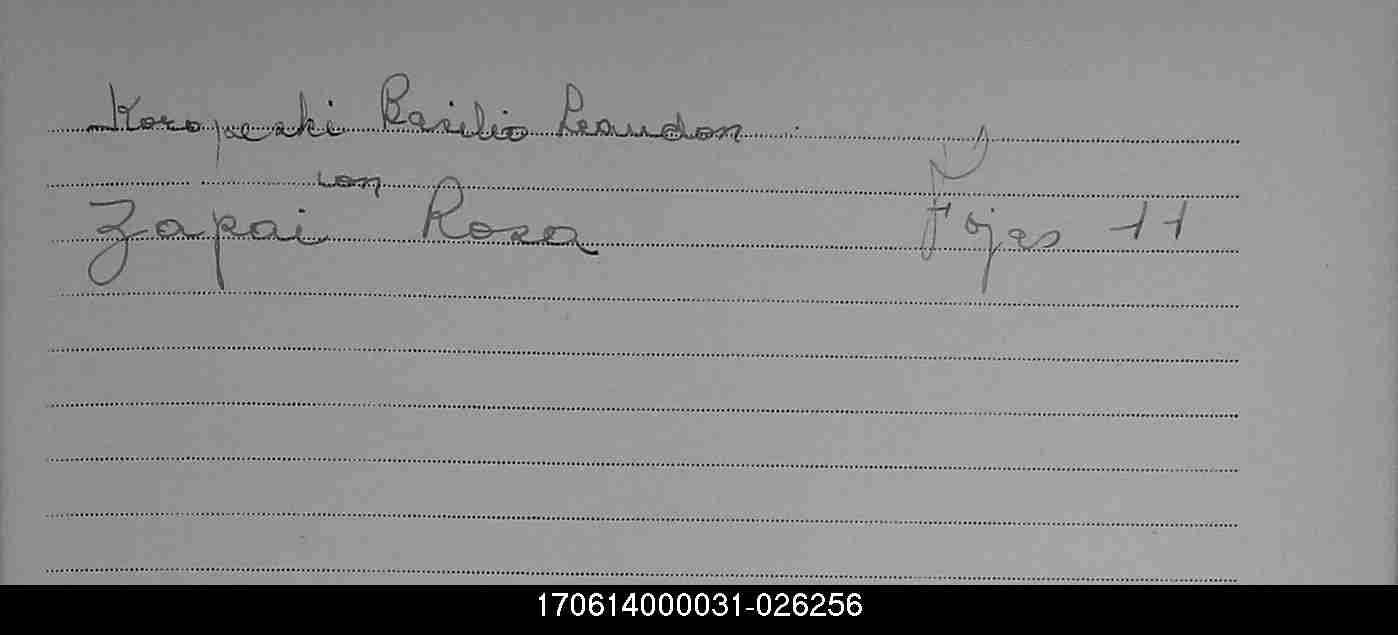 Koropeski Basilio Leandon
con
Zapai Rosa Fojas 11
170614000031-026256